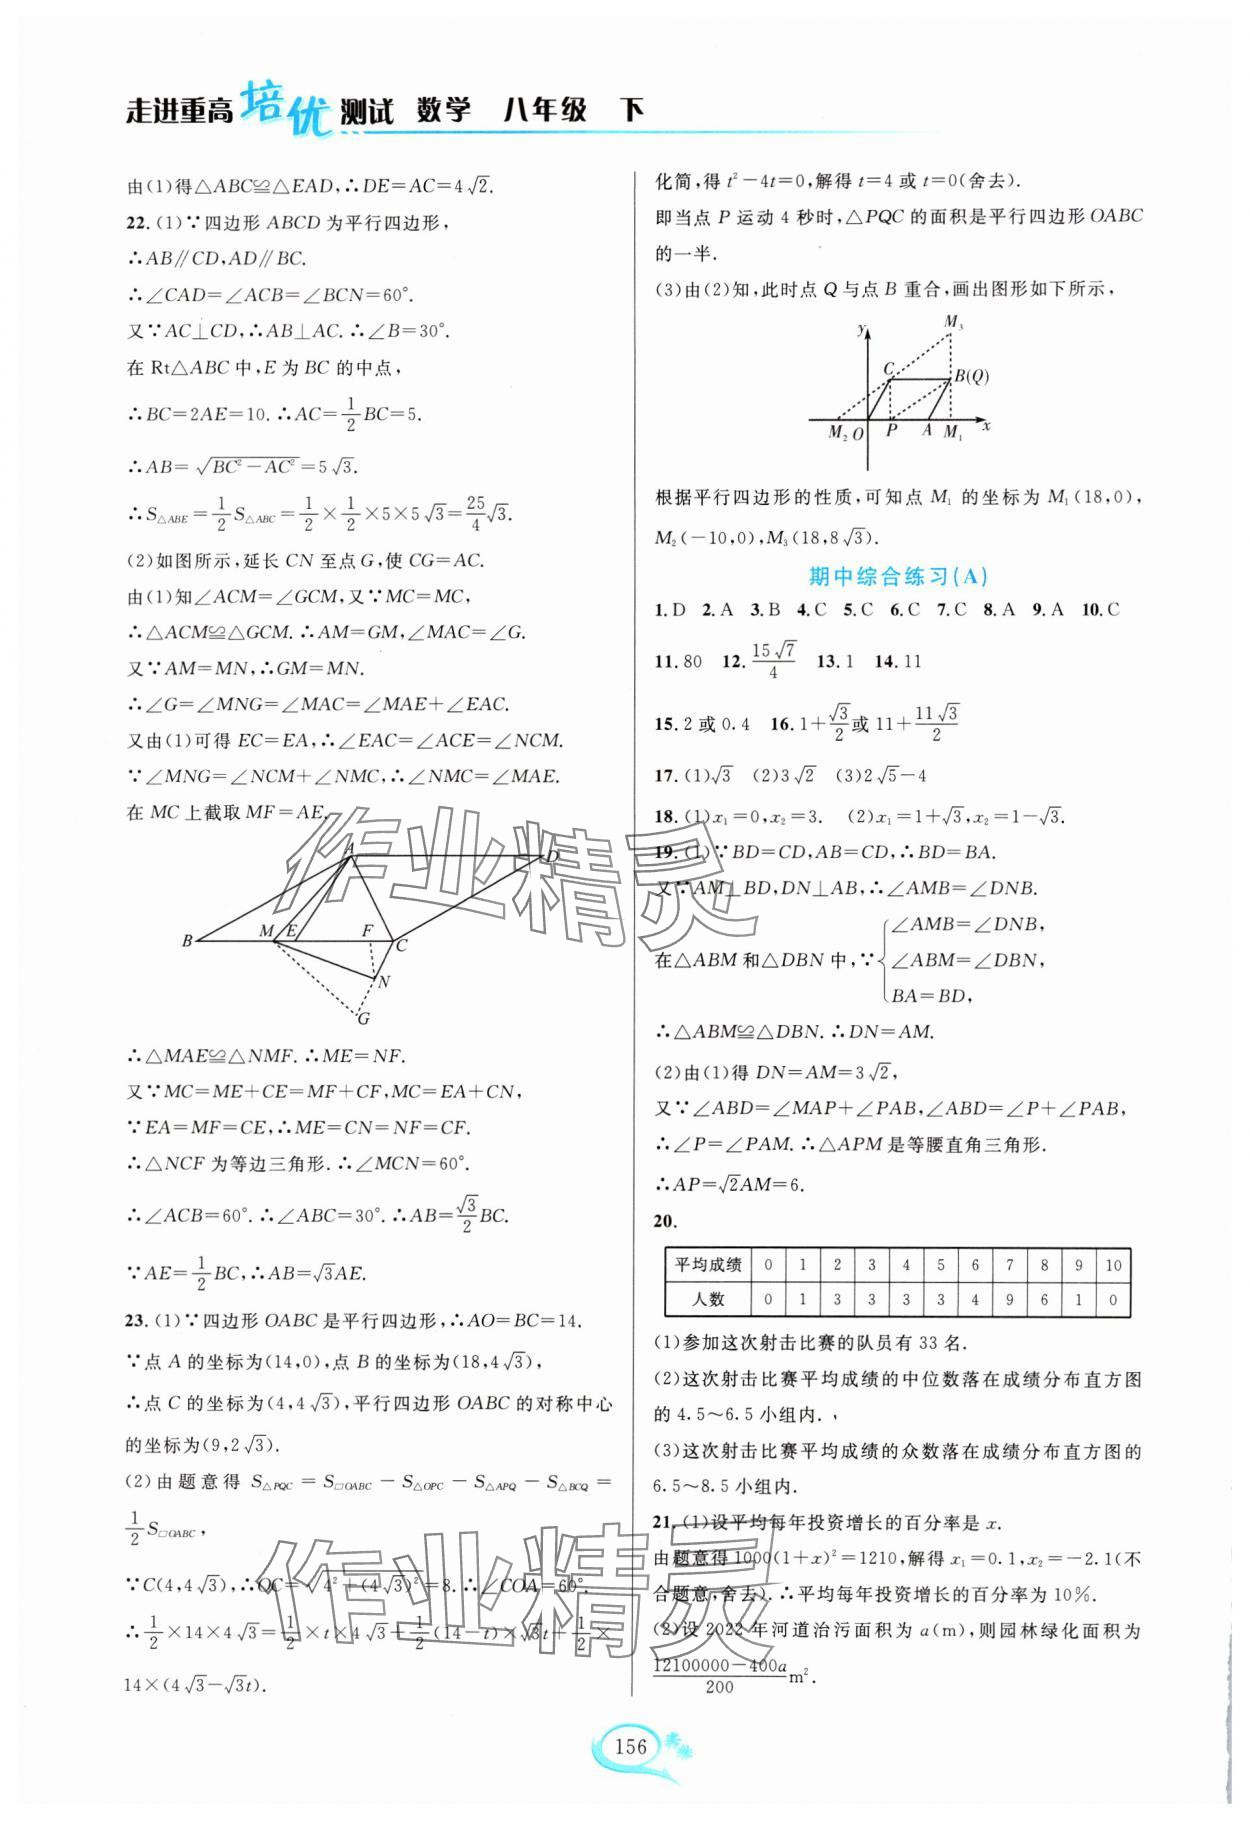 走进重高培优测试 数学 八年级 下
由(1)得△ABC≌△EAD,∴DE=AC=4√2.
22.(1)∵四边形 ABCD 为平行四边形,
∴AB∥CD,AD∥BC.
∴∠CAD=∠ACB=∠BCN=60°.
又∵AC⊥CD,∴AB⊥AC.∴∠B=30°.
在 Rt△ABC 中,E 为 BC 的中点,
∴BC=2AE=10.∴AC=1/2BC=5.
∴AB=√(BC²-AC²)=5√3.
∴S△ABE=1/2S△ABC=1/2×1/2×5×5√3=25/4√3.
(2)如图所示,延长 CN 至点 G,使 CG=AC.
由(1)知∠ACM=∠GCM,又∵MC=MC,
∴△ACM≌△GCM.∴AM=GM,∠MAC=∠G.
又∵AM=MN,∴GM=MN.
∴∠G=∠MNG=∠MAC=∠MAE+∠EAC.
又由(1)可得 EC=EA,∴∠EAC=∠ACE=∠NCM.
∵∠MNG=∠NCM+∠NMC,∴∠NMC=∠MAE.
在 MC 上截取 MF=AE.
A D B M E F C N G
∴△MAE≌△NMF.∴ME=NF.
又∵MC=ME+CE=MF+CF,MC=EA+CN,
∵EA=MF=CE,∴ME=CN=NF=CF.
∴△NCF 为等边三角形.∴∠MCN=60°.
∴∠ACB=60°.∴∠ABC=30°.∴AB=√3/2BC.
∵AE=1/2BC,∴AB=√3AE.
23.(1)∵四边形 OABC 是平行四边形,∴AO=BC=14.
∵点 A 的坐标为(14,0),点 B 的坐标为(18,4√3),
∴点 C 的坐标为(4,4√3),平行四边形 OABC 的对称中心
的坐标为(9,2√3).
(2)由题意得 S△PQC=S□OABC-S△OPC-S△APQ-S△BCQ=
1/2S□OABC,
∵C(4,4√3),∴OC=√(4²+(4√3)²)=8.∴∠COA=60°.
∴1/2×14×4√3=1/2×t×4√3+1/2(14-t)×√3t+1/2×
14×(4√3-√3t).
化简,得 t²-4t=0,解得 t=4 或 t=0(舍去).
即当点 P 运动 4 秒时,△PQC 的面积是平行四边形 OABC
的一半.
(3)由(2)知,此时点 Q 与点 B 重合,画出图形如下所示,
y M₃ C B(Q) M₂ O P A M₁ x
根据平行四边形的性质,可知点 M₁ 的坐标为 M₁(18,0),
M₂(-10,0),M₃(18,8√3).
期中综合练习(A)
1.D 2.A 3.B 4.C 5.C 6.C 7.C 8.A 9.A 10.C
11.80 12.15√7/4 13.1 14.11
15.2 或 0.4 16.1+√3/2或 11+11√3/2
17.(1)√3 (2)3√2 (3)2√5-4
18.(1)x₁=0,x₂=3. (2)x₁=1+√3,x₂=1-√3.
19.(1)∵BD=CD,AB=CD,∴BD=BA.
又∵AM⊥BD,DN⊥AB,∴∠AMB=∠DNB.
在△ABM 和△DBN 中,∵{∠AMB=∠DNB,
∠ABM=∠DBN,
BA=BD,
∴△ABM≌△DBN.∴DN=AM.
(2)由(1)得 DN=AM=3√2,
又∵∠ABD=∠MAP+∠PAB,∠ABD=∠P+∠PAB,
∴∠P=∠PAM.∴△APM 是等腰直角三角形.
∴AP=√2AM=6.
20.
平均成绩 0 1 2 3 4 5 6 7 8 9 10
人数 0 1 3 3 3 3 4 9 6 1 0
(1)参加这次射击比赛的队员有 33 名.
(2)这次射击比赛平均成绩的中位数落在成绩分布直方图
的 4.5~6.5 小组内.
(3)这次射击比赛平均成绩的众数落在成绩分布直方图的
6.5~8.5 小组内.
21.(1)设平均每年投资增长的百分率是 x.
由题意得1000(1+x)²=1210,解得 x₁=0.1,x₂=-2.1(不
合题意,舍去).∴平均每年投资增长的百分率为 10%.
(2)设 2022 年河道治污面积为 a(m),则园林绿化面积为
(12100000-400a)/200 m².
作业精灵
作业精灵
156